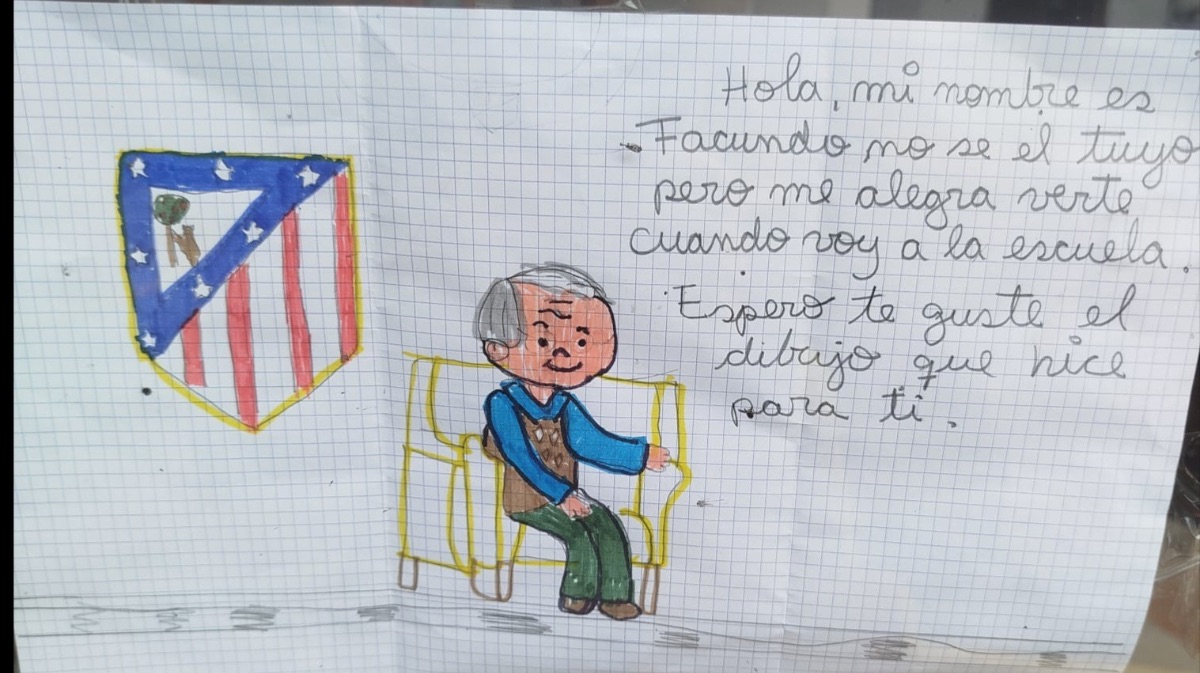 Hola, mi nombre es
Facundo no se el tuyo
pero me alegra verte
cuando voy a la escuela.
Espero te guste el
dibujo que hice
para ti.